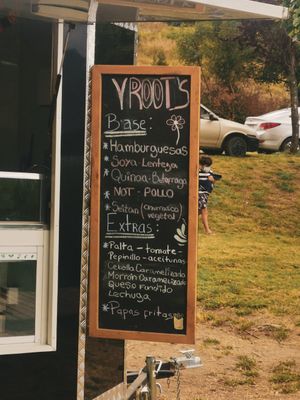 V.ROOT'S
Base:
* Hamburguesas
* Soya-Lenteja
* Quinoa-Betarraga
NOT-POLLO
* Seitan (churrasco vegetal)
Extras:
* Palta-tomate-
Pepinillo-aceitunas
Cebolla Caramelizada
Morrón Caramelizado
Queso Fundido
Lechuga
* Papas fritas